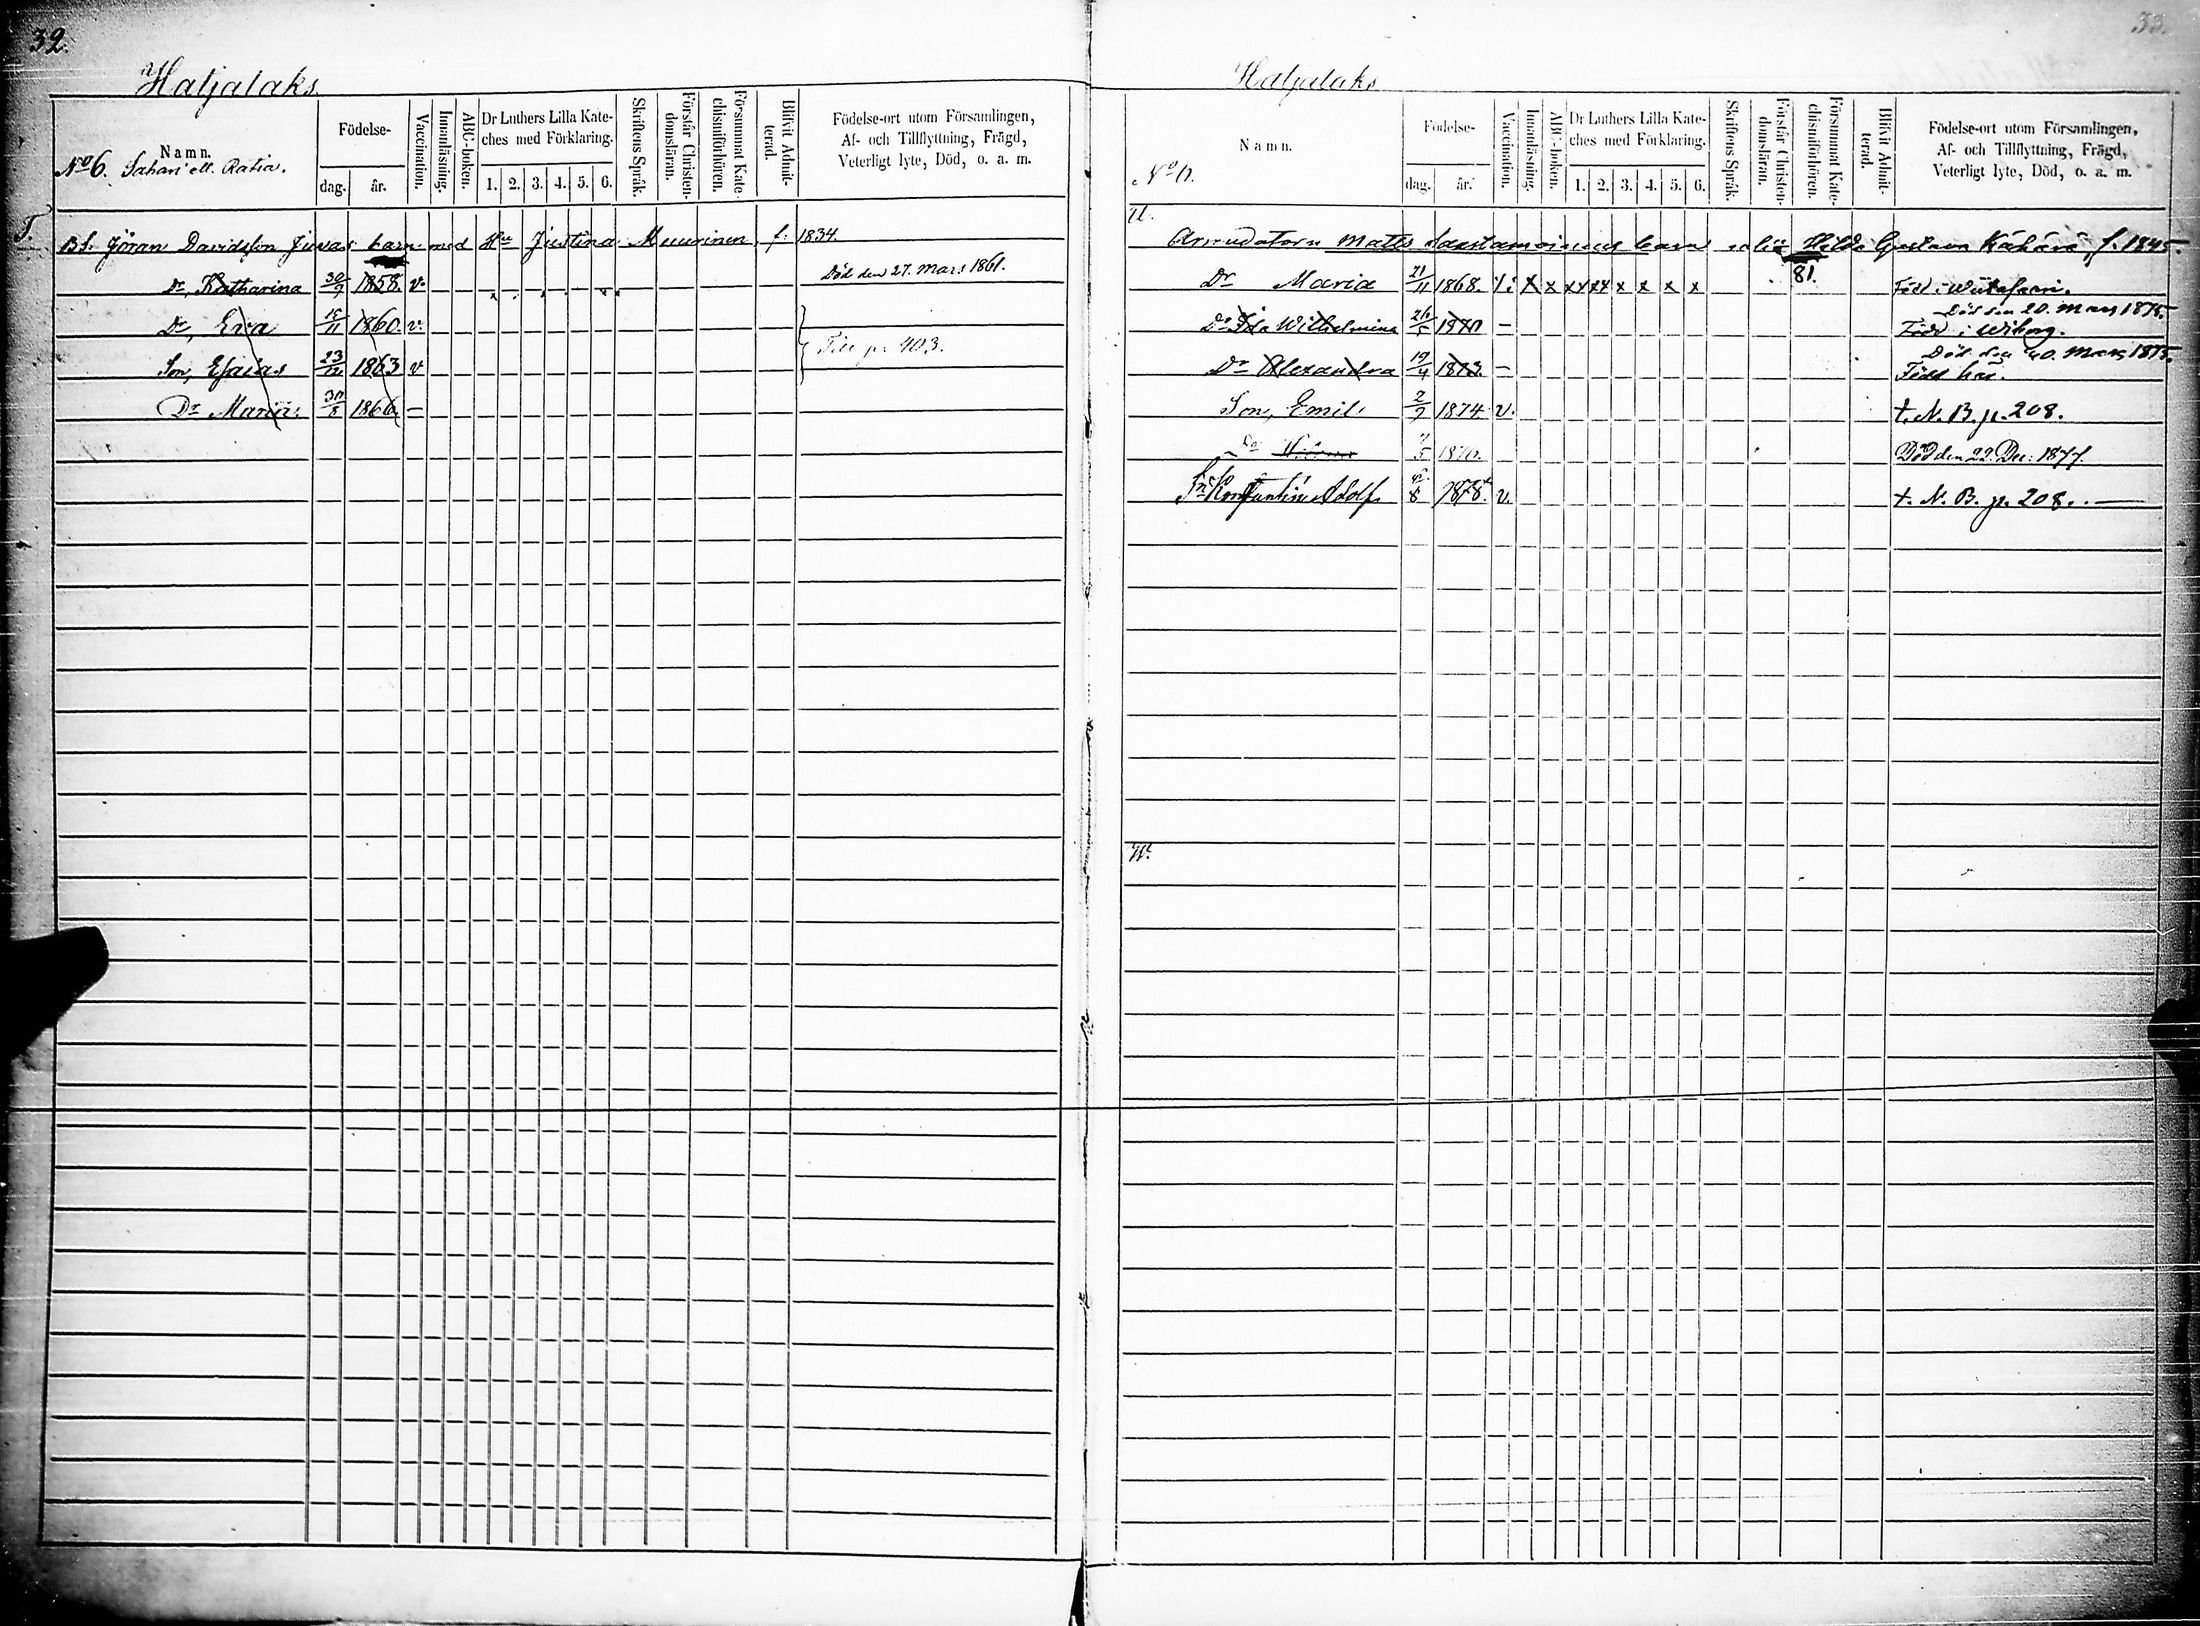 32.
Haljalaks
Namn.
No 6. Sahari ell. Ratia.
Födelse-
dag.
år.
Vaccination.
Innanläsning.
ABC-boken.
Dr Luthers Lilla Kate-
ches med Förklaring.
1. 2. 3. 4. 5. 6.
Skriftens Språk.
Förstår Christen-
domsläran.
Försummat Kate-
chismiförhören.
Blifvit Admit-
terad.
Födelse-ort utom Församlingen,
Af- och Tillflyttning, Frägd,
Veterligt lyte, Död, o. a. m.
T.
Bs. Jöran Davidsson Juvas barn med Hu Justina Muurinen, f. 1834.
Dr, Katharina 30/9 1858. v. Död den 27. Mars 1861.
Dr, Eva 15/11 1860. v.
Till p. 403.
Son, Esaias 23/12 1863 v
Dr Maria 30/8 1866. —
33.
Haljalaks
Namn.
No 6.
Födelse-
dag.
år.
Vaccination.
Innanläsning.
ABC-boken.
Dr Luthers Lilla Kate-
ches med Förklaring.
1. 2. 3. 4. 5. 6.
Skriftens Språk.
Förstår Christen-
domsläran.
Försummat Kate-
chismiförhören.
Blifvit Admit-
terad.
Födelse-ort utom Församlingen,
Af- och Tillflyttning, Frägd,
Veterligt lyte, Död, o. a. m.
U.
Arrendatorn Matts barn Hilda Gustava Kähärä, f. 1845.
81.
Dr Maria 21/11 1868. x x x x x x x x Född i
Död den 20. Mars 1875.
Dr Ida Wilhelmina 26/5 1870 — Född i Wiborg.
Död den 20. Mars 1875.
Dr Alexandra 19/4 1873. — Född här.
Son, Emil 2/9 1874. v. t. N. B. p. 208.
1876. Död den 22. Dec: 1877.
Sn Konstantin Adolf 1878. v. t. N. B. p. 208. —
W.